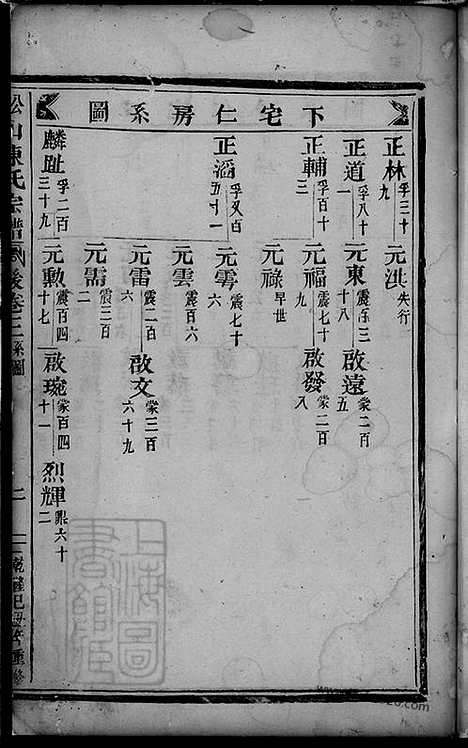 下宅仁房系圖
正林 孚三十九 元洪 失行
正道 孚八十一 元東 震 三十八 啟遠 蒙二百五
正輔 孚百十三 元福 震七十九 啟發 蒙二百八
元祿 早世
正滔 孚又百五十一 元雩 震七十六
元雲 震百六
元雷 震二百六 啟文 蒙三百六十九
元需 震三百二
麟趾 孚二百三十九 元勲 震百四十七 啟琬 蒙百四十一 烈輝 鼎六十二
松山陳氏宗譜 後卷二 系圖
二
乾隆己 重修
上海圖書館藏